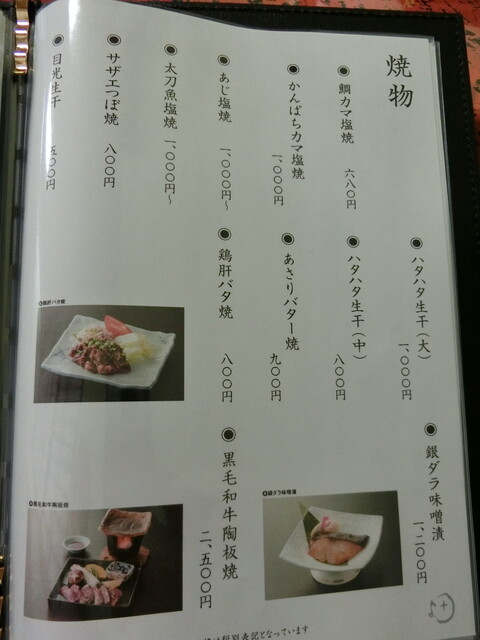 焼物
◉鯛カマ塩焼 六八〇円
◉かんぱちカマ塩焼 一、〇〇〇円
◉あじ塩焼 一、〇〇〇円〜
◉太刀魚塩焼 一、〇〇〇円〜
◉サザエつぼ焼 八〇〇円
◉目光生干 五〇〇円
◉ハタハタ生干(大) 一、〇〇〇円
◉ハタハタ生干(中) 八〇〇円
◉あさりバター焼 九〇〇円
◉鶏肝バタ焼 八〇〇円
◉銀ダラ味噌漬 一、二〇〇円
◉黒毛和牛陶板焼 二、五〇〇円
鶏肝バタ焼
黒毛和牛陶板焼
銀ダラ味噌漬
別表記となっています